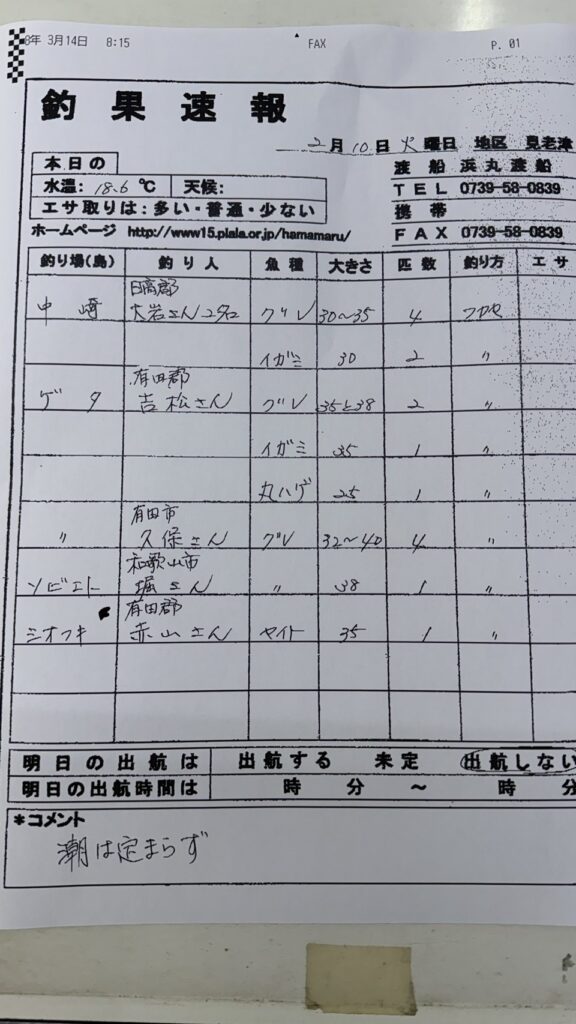 8年 3月14日 8:15 FAX P. 01
釣果速報
2月10日火曜日 地区 見老津
本日の
渡船 浜丸渡船
水温: 18.6℃ 天候:
TEL 0739-58-0839
エサ取りは:多い・普通・少ない
携帯
ホームページ http://www15.plala.or.jp/hamamaru/
FAX 0739-58-0839
釣り場(島) 釣り人 魚種 大きさ 匹数 釣り方 エサ
日高郡
中崎 大岩さん2名 グレ 30~35 4 フカセ
イガミ 30 2 〃
有田郡
ゲタ 吉松さん グレ 35と38 2 〃
イガミ 35 1 〃
丸ハゲ 25 1 〃
有田市
〃 久保さん グレ 32~40 4 〃
和歌山市
ソビエト 堀さん 〃 38 1 〃
有田郡
シオフキ 赤山さん ヤイト 35 1 〃
明日の出航は 出航する 未定 出航しない
明日の出航時間は 時 分 ~ 時 分
*コメント
潮は定まらず